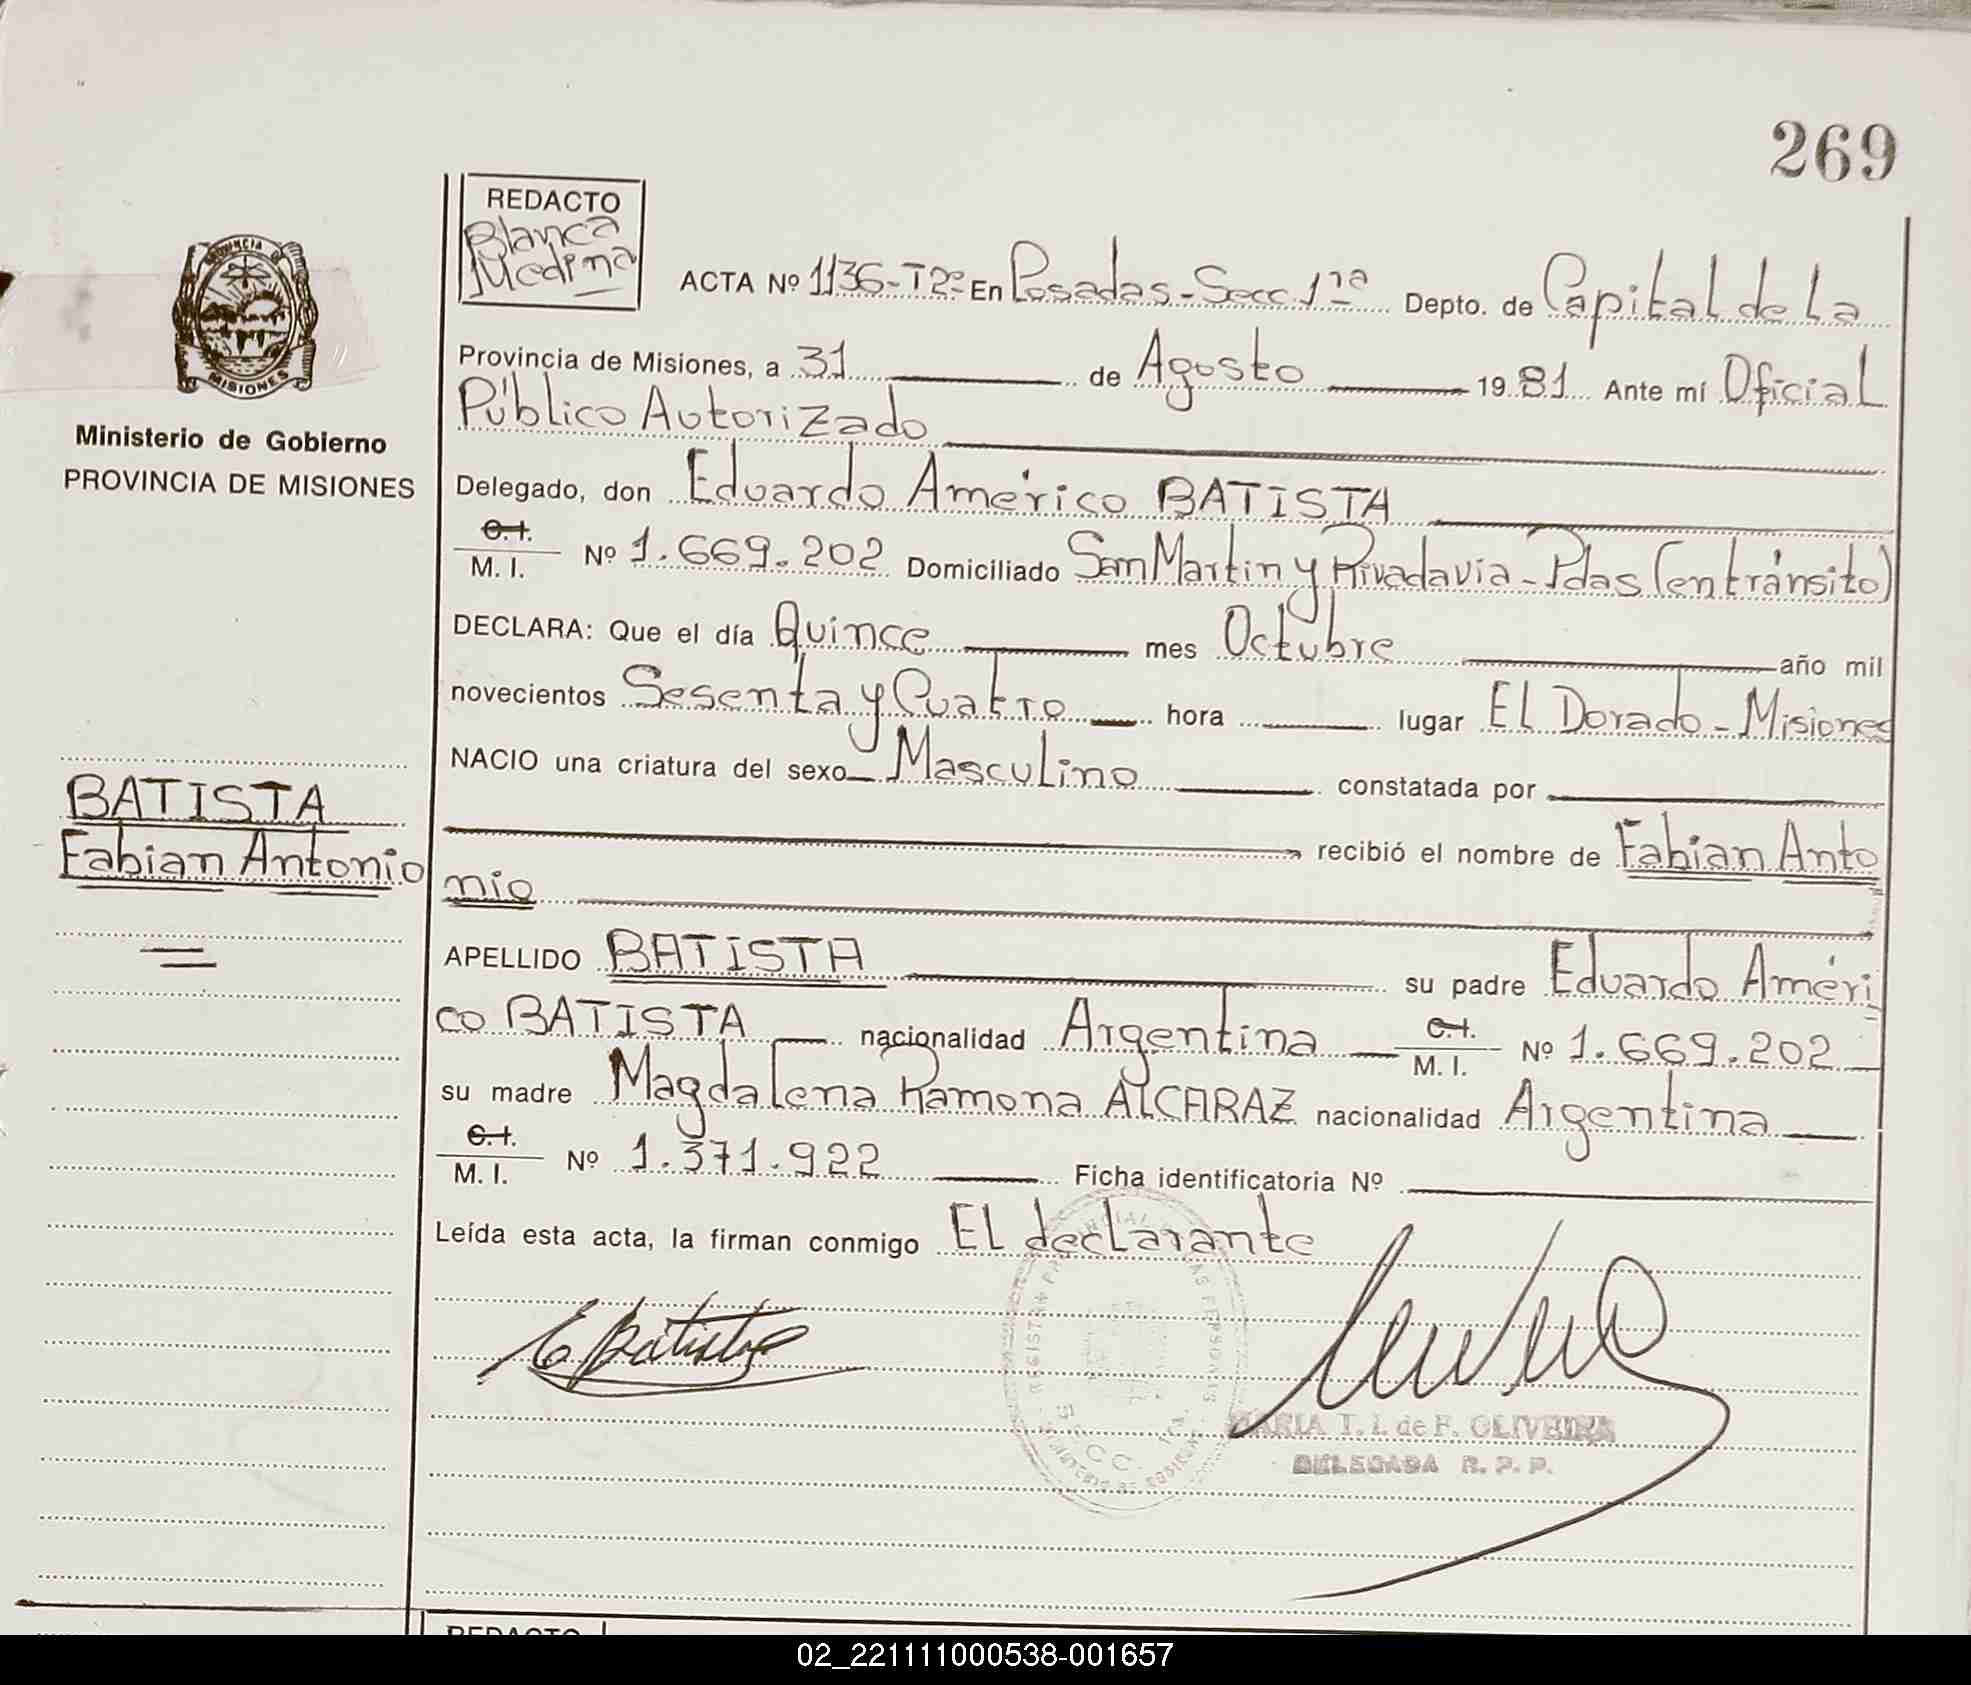 269
REDACTO
Blanca
Medina
PROVINCIA DE
MISIONES
Ministerio de Gobierno
PROVINCIA DE MISIONES
ACTA Nº 1136-T2º En Posadas-Secc 1ra Depto. de Capital de La
Provincia de Misiones, a 31 de Agosto 19 81 Ante mí Oficial
Público Autorizado
Delegado, don Eduardo Américo BATISTA
C.I.
M. I. Nº 1.669.202 Domiciliado San Martin y Rivadavia-Pdas (en tránsito)
DECLARA: Que el día Quince mes Octubre año mil
novecientos Sesenta y Cuatro hora lugar El Dorado - Misiones
NACIO una criatura del sexo Masculino constatada por
BATISTA
Fabian Antonio
recibió el nombre de Fabian Anto
nio
APELLIDO BATISTA su padre Eduardo Améri
co BATISTA nacionalidad Argentina C.I. M. I. Nº 1.669.202
su madre Magdalena Ramona ALCARAZ nacionalidad Argentina
C.I.
M. I. Nº 1.371.922 Ficha identificatoria Nº
Leída esta acta, la firman conmigo El declarante
E. Batista
SECC. 1ra.
MARIA T. I. de F. OLIVEIRA
DELEGADA R. P. P.
REDACTO
02_221111000538-001657